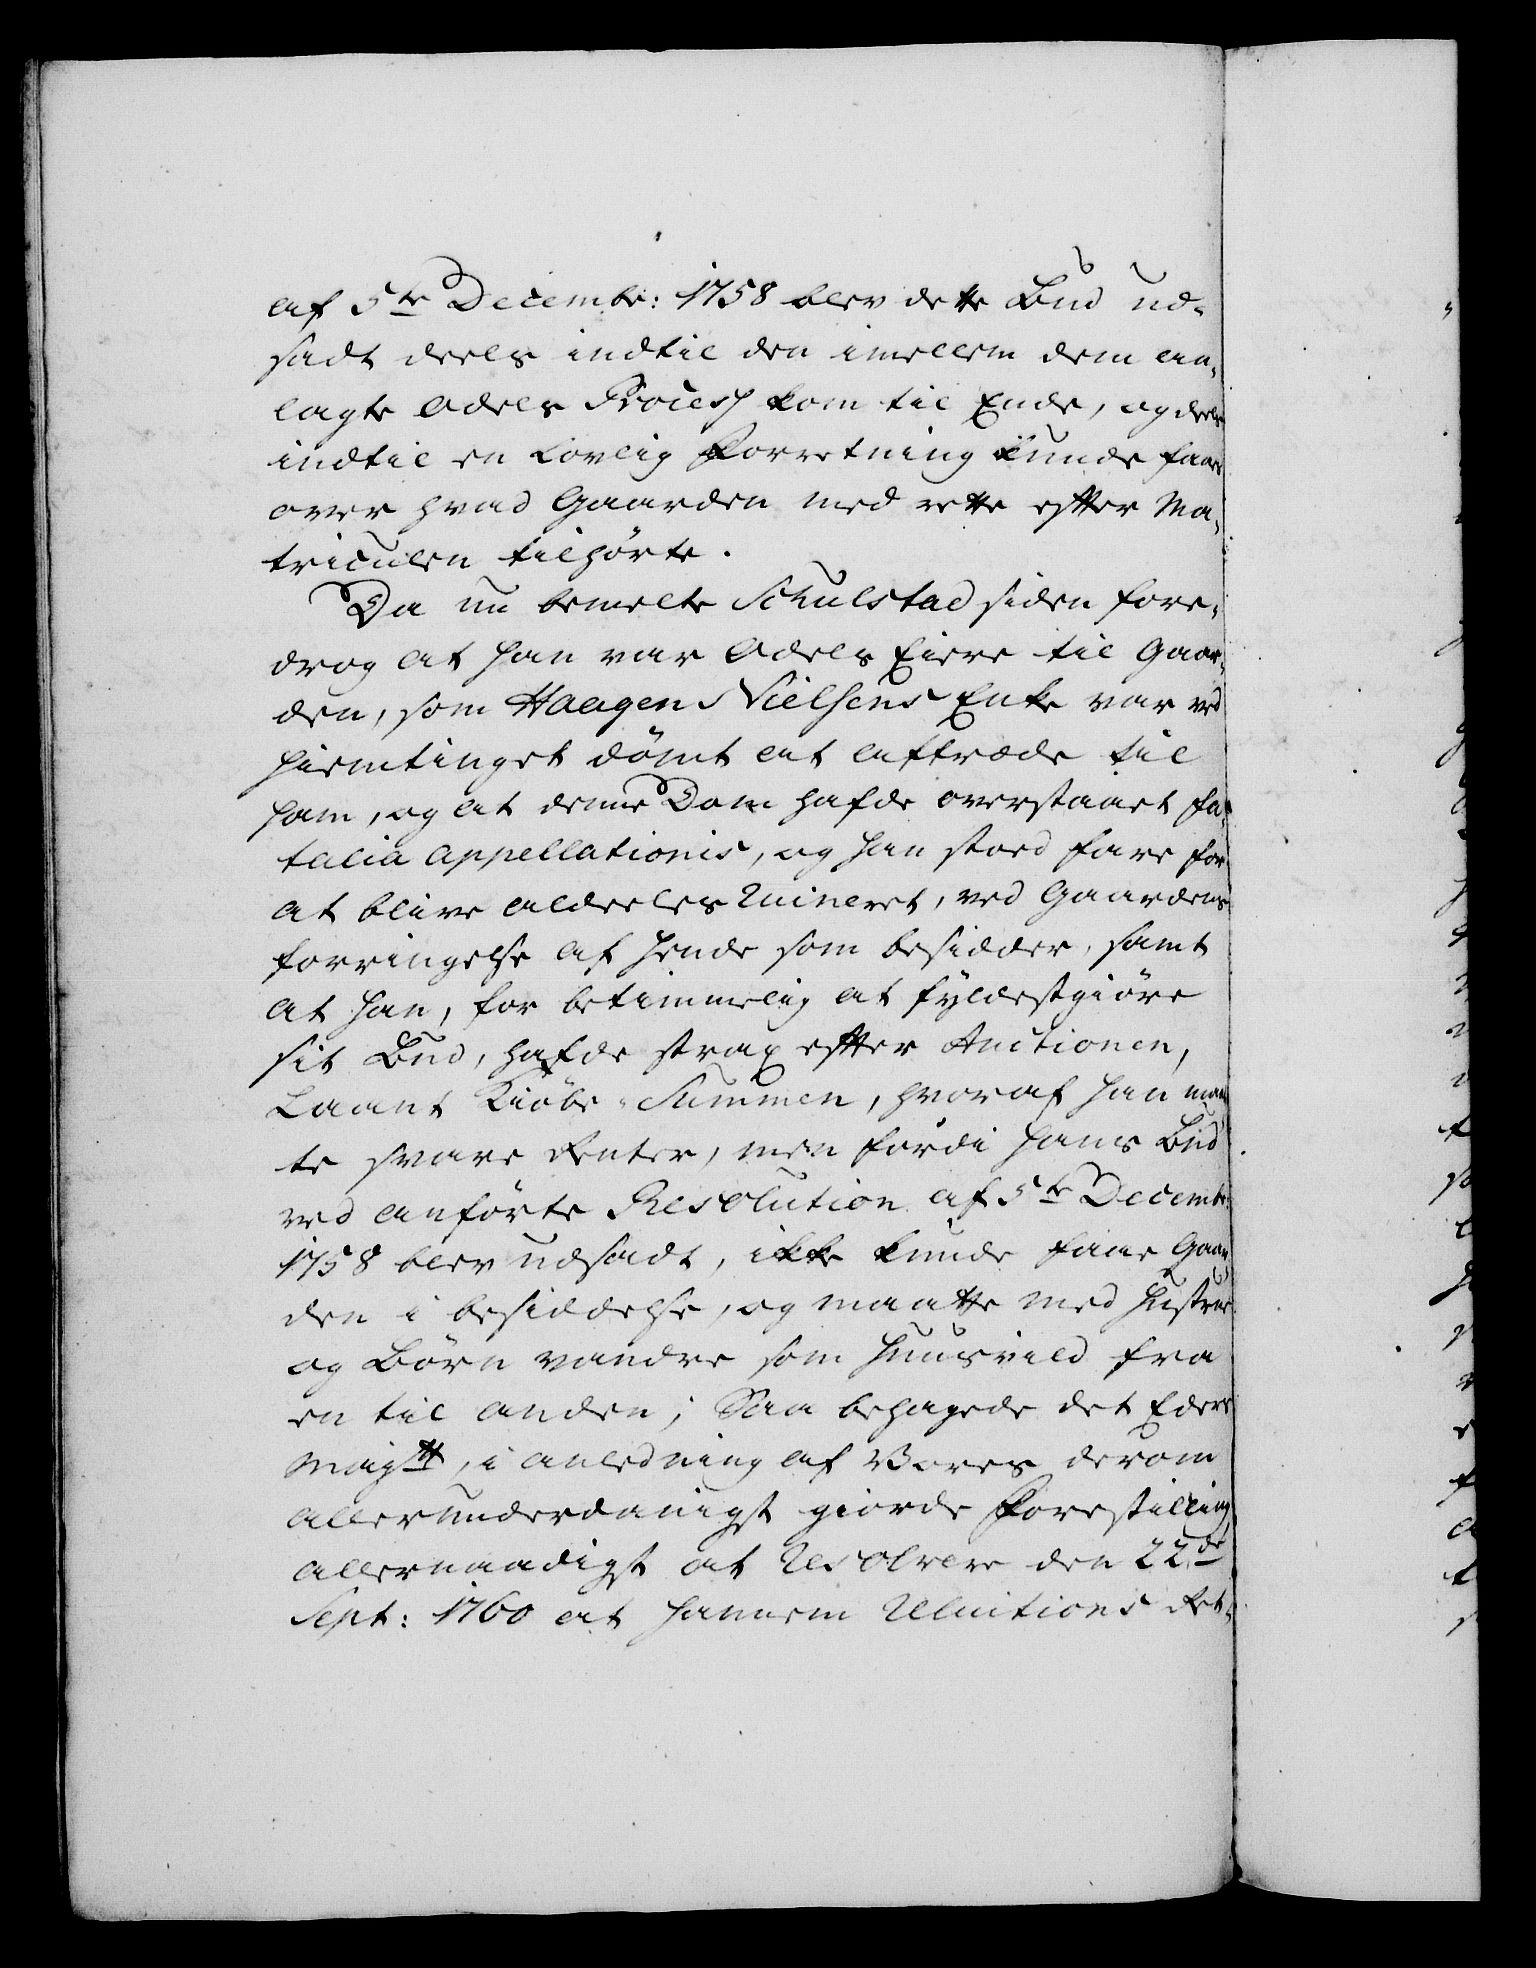 af 5te Decembr: 1758 blev dette Bud ud-
sadt deels indtil den imellem dem an-
lagte Odels Process kom til Ende, og deels
indtil en Lovlig Forretning kunde faaes
over hvad Gaarden med rette efter Ma-
triculen tilhørte.
Da nu bemelte Schulstad siden fore-
drog at han var Odels Eiere til Gaar-
den, som Haagen Nielsens Enke var ved
Hiemtinget dömt at aftræde til
ham, og at denne Dom hafde overstaaet fa-
talia appellationis, og han stoed fare for
at blive aldeeles Ruineret, ved Gaardens
forringelse af hende som besidder, samt
at han, for betimmelig at fyldestgiöre
sit Bud, hafde strax efter Auctionen,
Laant Kiöbe-Summen, hvoraf han maa-
te svare Renter, men fordi hans Bud
ved anförte Resolution af 5te Decembr:
1758 blev udsadt, ikke kunde faae Gaar-
den i besiddelse, og maatte med Hustrue
og Börn vandre som Huusvild fra
en til anden; Saa behagede det Eders
Maytt, i anledning af Vores derom
allerunderdanigst giorde Forestilling
allernaadigst at Resolvere den 22de
Sept: 1760 at hannem Reluitions Ret-